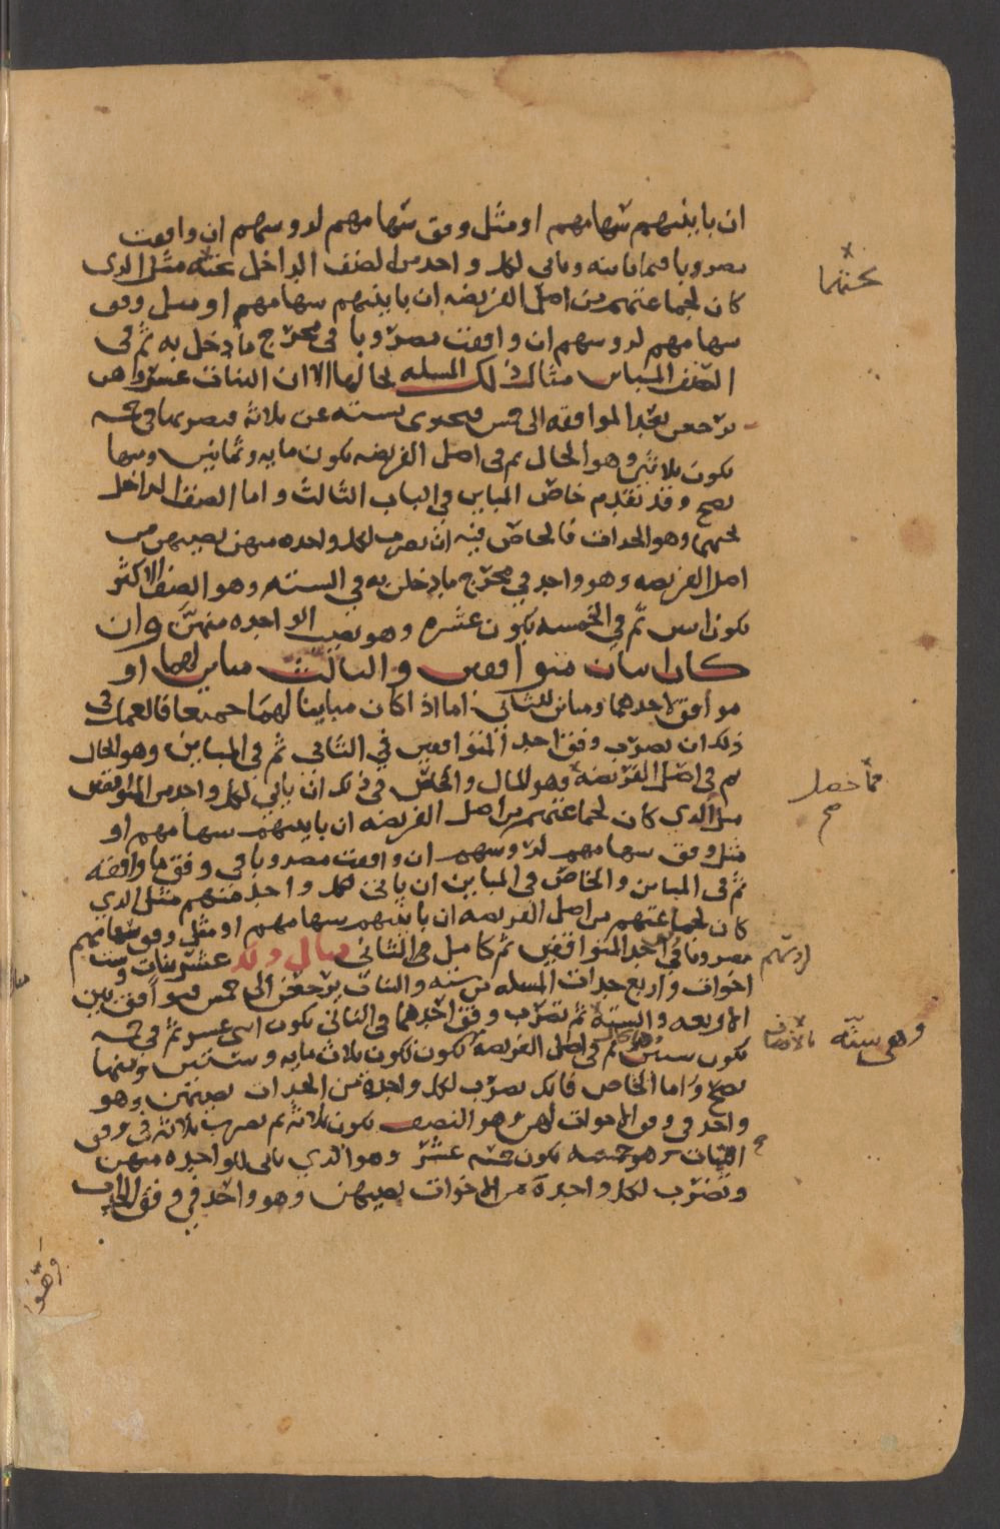 ان باينتهم سهامهم او مثل وفق سهامهم لروسهم ان وافقت
مضروبا فيما باينه وياتي لكل واحد من الصنف الداخل تحته مثل الذي
كان لجماعتهم من اصل الفريضه ان باينتهم سهامهم او مثل وفق
سهامهم لروسهم ان وافقت مضروبا في مخرج ما دخل به ثم في
الصنف المباين مثال ذلك المسله بحالها الا ان البنات عشر واهن
يرجعن بعد الموافقه الى خمس فيجتزى بسته عن ثلاثة فتضربها في خمسه
يكون ثلاثين وهو الحال ثم في اصل الفريضه يكون مايه وثمانين ومنها
تصح وقد تقدم خاص المباين في الباب الثالث واما الصنف الداخل
تحتهما وهو الجدات فالخاص فيه ان تضرب لكل واحده منهن نصيبهن من
اصل الفريضه وهو واحد في مخرج ما دخلن به في السته وهو الصنف الاكثر
يكون اثنين ثم في الخمسه يكون عشره وهو نصيب الواحده منهن وان
كان اثنان متوافقين والثالث مباين لهما او
موافق لاحدهما ومباين للثاني اما اذا كان مباينا لهما جميعا فالعمل في
ذلك ان تضرب وفق احد المتوافقين في الثاني ثم في المباين وهو الحال
ثم في اصل الفريضه وهو المال والخاص في ذلك ان ياتي لكل واحد من المتوافقين
مثل الذي كان لجماعتهم من اصل الفريضه ان باينتهم سهامهم او
مثل وفق سهامهم لروسهم ان وافقت مضروبا في وفق ما وافقه
ثم في المباين والخاص في المباين ان ياتي لكل واحد منهم مثل الذي
كان لجماعتهم من اصل الفريضه ان باينتهم سهامهم او مثل وفق سهامهم
مضروبا في احد المتوافقين ثم كامل في الثاني مثال ذلك عشر بنات وست
اخوات واربع جدات المسله من سته والبنات يرجعن الى خمس فوافق بين
الاربعه والسته ثم تضرب وفق احدهما في الثاني يكون اثني عشر ثم في خمسه
يكون ستين ثم في اصل الفريضه يكون ثلاث مايه وستين ومنها
تصح واما الخاص فانك تضرب لكل واحدة من الجدات نصيبهن وهو
واحد في وفق الاخوات لهن وهو النصف يكون ثلاثة ثم تضرب ثلاثة في وفق
البنات وهو خمسه يكون خمسه عشر وهو الذي ياتي للواحده منهن
وتضرب لكل واحدة من الاخوات نصيبهن وهو واحد في وفق الجدات
تحتهما
مما حصل
لروسهم
وهي ستة بالانصاف
وهو